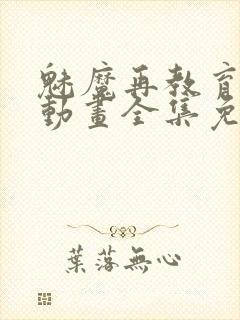 魅魔再教育
動畫全集免
葉落無心